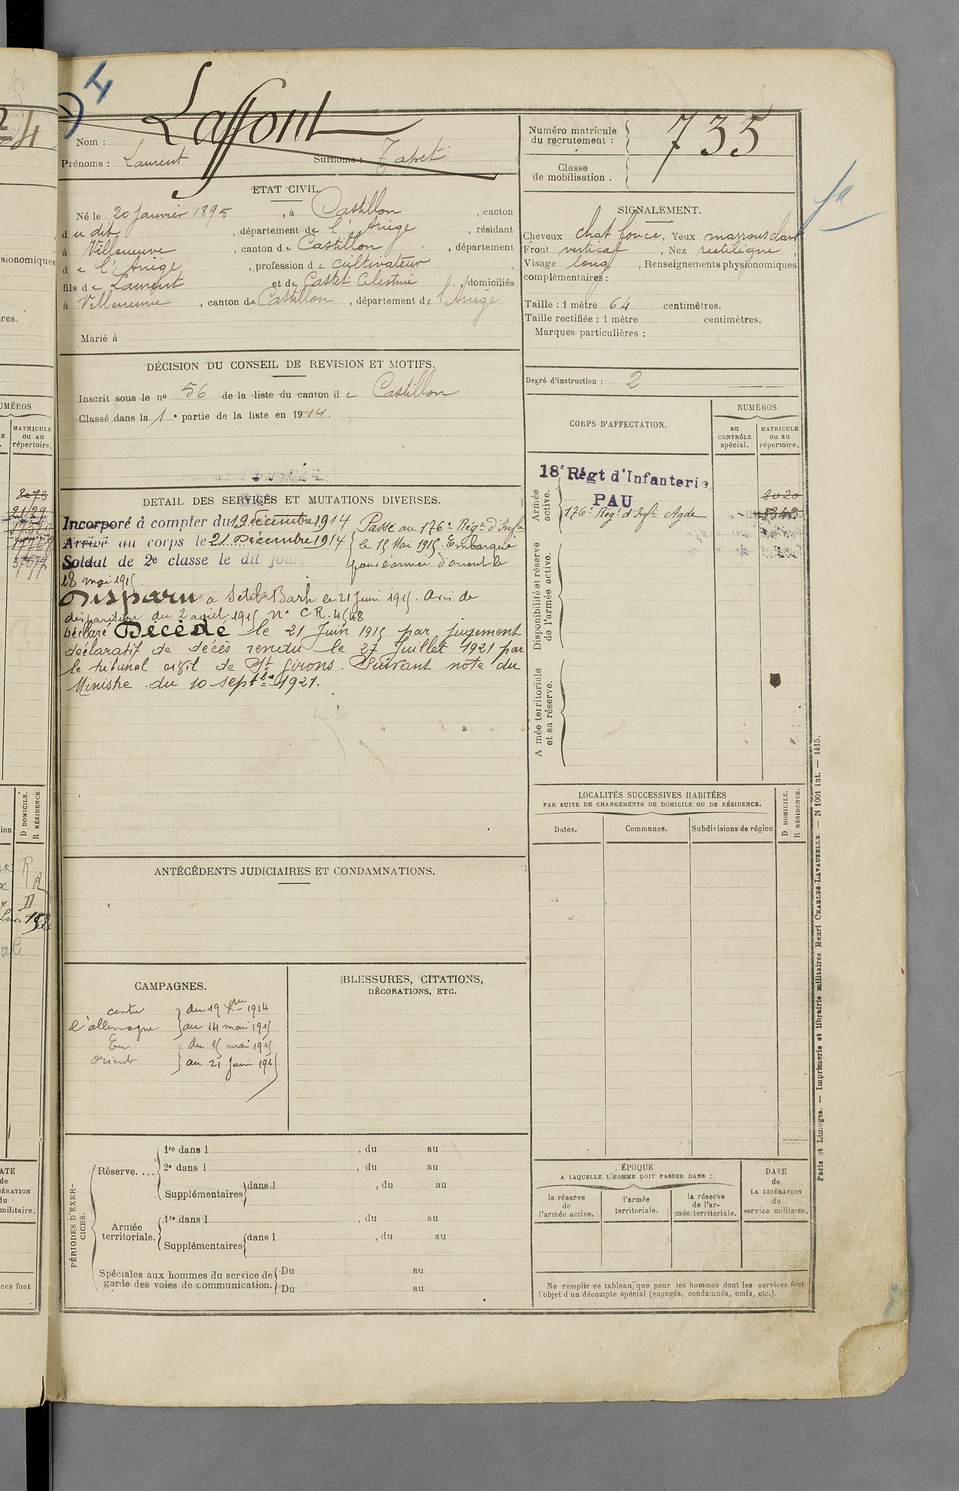 Laffont
Nom :
Prénoms : Laurent Surnoms : Tapet
Numéro matricule du recrutement : 735
Classe de mobilisation :
ETAT CIVIL.
Né le 20 Janvier 1895, à Castillon, canton
du dit, département de l'Ariège, résidant
à Villeneuve, canton de Castillon, département
de l'Ariège, profession de cultivateur
fils de Laurent et de Castet Célestine, domiciliés
à Villeneuve, canton de Castillon, département de l'Ariège
Marié à
SIGNALEMENT.
Cheveux chat. foncé, Yeux marrons clairs
Front vertical, Nez rectiligne,
Visage long, Renseignements physionomiques
complémentaires :
Taille : 1 mètre 64 centimètres.
Taille rectifiée : 1 mètre centimètres.
Marques particulières :
DÉCISION DU CONSEIL DE REVISION ET MOTIFS.
Inscrit sous le no 56 de la liste du canton de Castillon
Classé dans la 1e partie de la liste en 1914.
Degré d'instruction : 2
DETAIL DES SERVICES ET MUTATIONS DIVERSES.
Incorporé à compter du 19 décembre 1914
Arrivé au corps le 21 Décembre 1914
Soldat de 2e classe le dit jour.
Passé au 176e Régt d'Infie
le 15 Mai 1915. Embarqué
pour l'armée d'orient le
18 mai 1915.
Disparu à Sedil Barh le 21 Juin 1915. Avis de
disparition du 2 1915 no C R. 4548
Déclaré Décédé le 21 Juin 1915 par jugement
déclaratif de décès rendu le 27 Juillet 1921 par
le tribunal civil de St Girons. Suivant note du
Ministre du 10 septbre 1921.
CORPS D'AFFECTATION.
NUMÉROS
au CONTRÔLE spécial.
MATRICULE ou au répertoire.
Armée active.
18e Régt d'Infanterie
PAU
8020
176e Régt d'Infie Agde
Disponibilité et réserve de l'armée active.
Armée territoriale et sa réserve.
LOCALITÉS SUCCESSIVES HABITÉES
PAR SUITE DE CHANGEMENTS DE DOMICILE OU DE RÉSIDENCE.
Dates. Communes. Subdivisions de région
D DOMICILE.
R RÉSIDENCE.
ANTÉCÉDENTS JUDICIAIRES ET CONDAMNATIONS.
CAMPAGNES.
contre du 19 Xbre 1914
l'allemagne au 14 mai 1915
En du 15 mai 1915
orient au 21 Juin 1915
BLESSURES, CITATIONS,
DÉCORATIONS, ETC.
PÉRIODES D'EXERCICES.
Réserve....
1re dans l , du au
2e dans l , du au
Supplémentaires dans l , du au
Armée territoriale.
1re dans l , du au
Supplémentaires dans l , du au
Spéciales aux hommes du service de garde des voies de communication.
Du au
Du au
ÉPOQUE
A LAQUELLE L'HOMME DOIT PASSER DANS :
la réserve de l'armée active.
l'armée territoriale.
la réserve de l'armée territoriale.
DATE de LA LIBÉRATION du service militaire.
Ne remplir ce tableau que pour les hommes dont les services font
l'objet d'un décompte spécial (engagés, condamnés, omis, etc.).
Paris et Limoges. — Imprimerie et librairie militaires Henri CHARLES-LAVAUZELLE. — N 1001 int. — 1415.